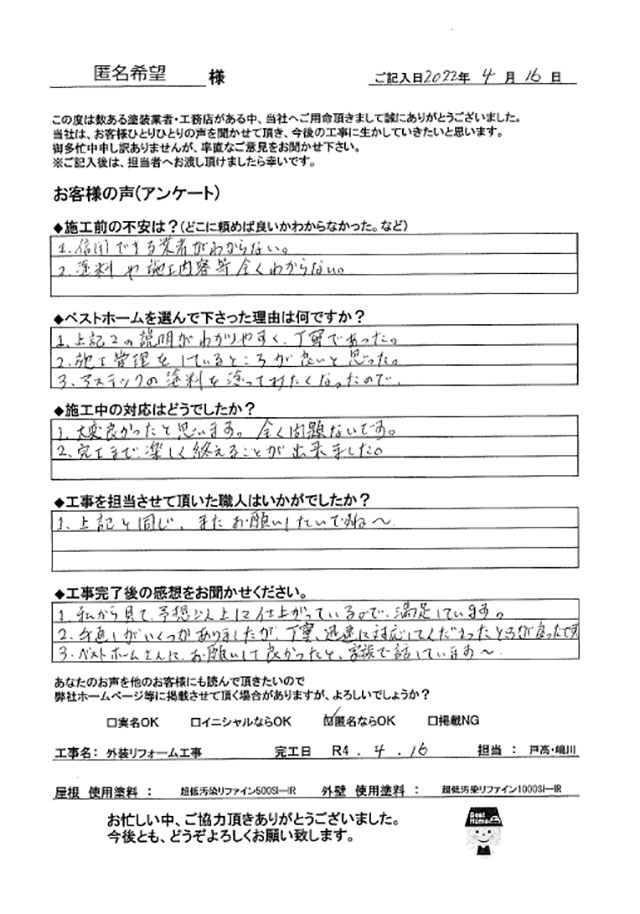 匿名希望 様
ご記入日2022年 4 月 16 日
この度は数ある塗装業者・工務店がある中、当社へご用命頂きまして誠にありがとうございました。
当社は、お客様ひとりひとりの声を聞かせて頂き、今後の工事に生かしていきたいと思います。
御多忙中申し訳ありませんが、率直なご意見をお聞かせ下さい。
※ご記入後は、担当者へお渡し頂けましたら幸いです。
お客様の声(アンケート)
◆施工前の不安は?(どこに頼めば良いかわからなかった。など)
1. 信用できる業者がわからない。
2. 塗料や施工内容等全くわからない。
◆ベストホームを選んで下さった理由は何ですか?
1. 上記2の説明がわかりやすく、丁寧であった。
2. 施工管理をしているところが良いと思った。
3. アステックの塗料を塗ってみたくなったので、
◆施工中の対応はどうでしたか?
1. 大変良かったと思います。全く問題ないです。
2. 完工まで楽しく終えることが出来ました。
◆工事を担当させて頂いた職人はいかがでしたか?
1. 上記と同じ、またお願いしたいですね〜
◆工事完了後の感想をお聞かせください。
1. 私から見て、予想以上に仕上がっているので、満足しています。
2. 手直しがいくつかありましたが、丁寧、迅速に対応してくださったところが良かったです
3. ベストホームさんに、お願いして良かったと、家族で話しています〜
あなたのお声を他のお客様にも読んで頂きたいので
弊社ホームページ等に掲載させて頂く場合がありますが、よろしいでしょうか?
□実名OK □イニシャルならOK ☑匿名ならOK □掲載NG
工事名: 外装リフォーム工事 完工日 R4 . 4 . 16 担当 : 戸高・嶋川
屋根 使用塗料 : 超低汚染リファイン500Si-IR 外壁 使用塗料 : 超低汚染リファイン1000Si-IR
お忙しい中、ご協力頂きありがとうございました。
今後とも、どうぞよろしくお願い致します。
Best Home